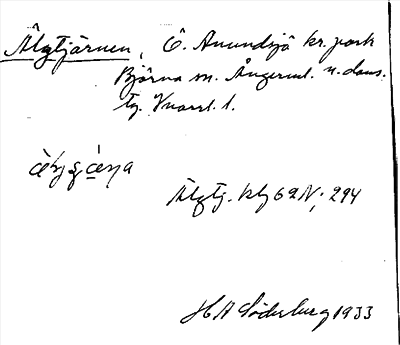 Älgtjärnen, Ö. Anundsjö kr. park
Björna sn. Ångerml. n. doms.
tg. Kvarnl. 1.
Älgtj. kbg 62 N; 294
H A Söderberg 1933